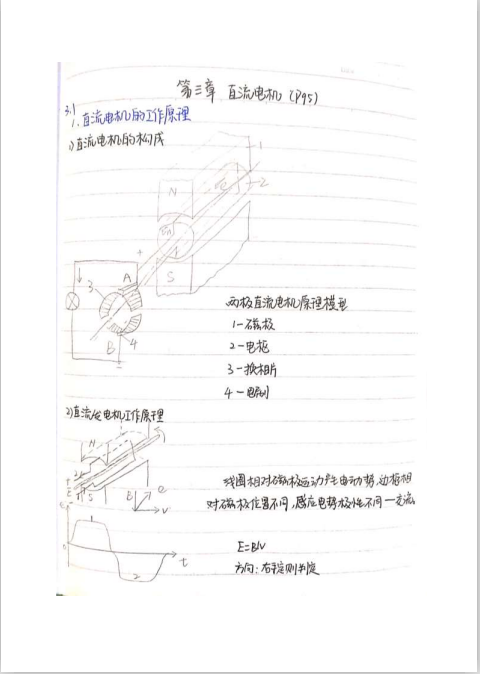 第三章 直流电机 (P95)
3.1
1. 直流电机的工作原理
1) 直流电机的构成
1
2
N
S
+
A
3
B
4
两极直流电机原理模型
1-磁极
2-电枢
3-换相片
4-电刷
2) 直流发电机工作原理
N
S
B
e
v
线圈相对磁极运动产生电动势,边框相
对磁极位置不同,感应电势极性不同—交流
1
0
2
t
E=BlV
方向:右手定则判定